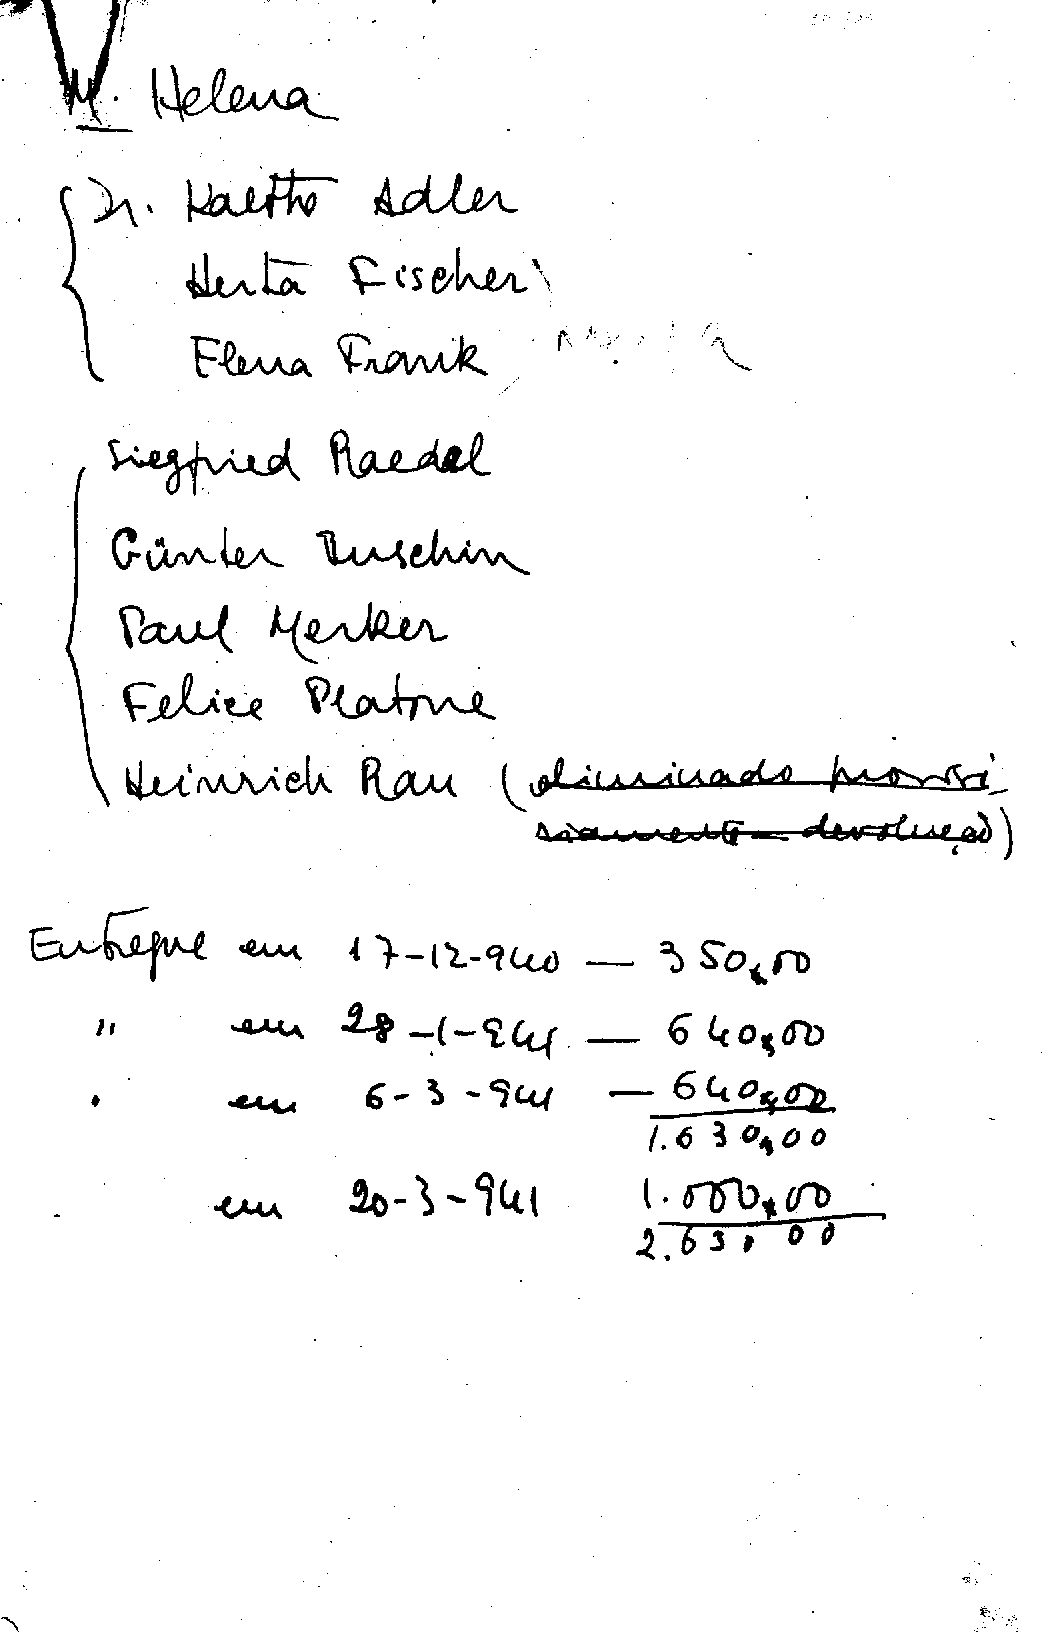 M. Helena
Dr. Adler
Herta Fischer
Elena Frank
Siegfried Raedel
Günter Ruschin
Paul Merker
Felice Platone
Heinrich Rau (eliminado provisó-
riamente - devolução)
Entregue em 17-12-940 — 350,00
" em 28-1-941 — 640,00
" em 6-3-941 — 640,00
1.630,00
em 20-3-941 1.000,00
2.630 00